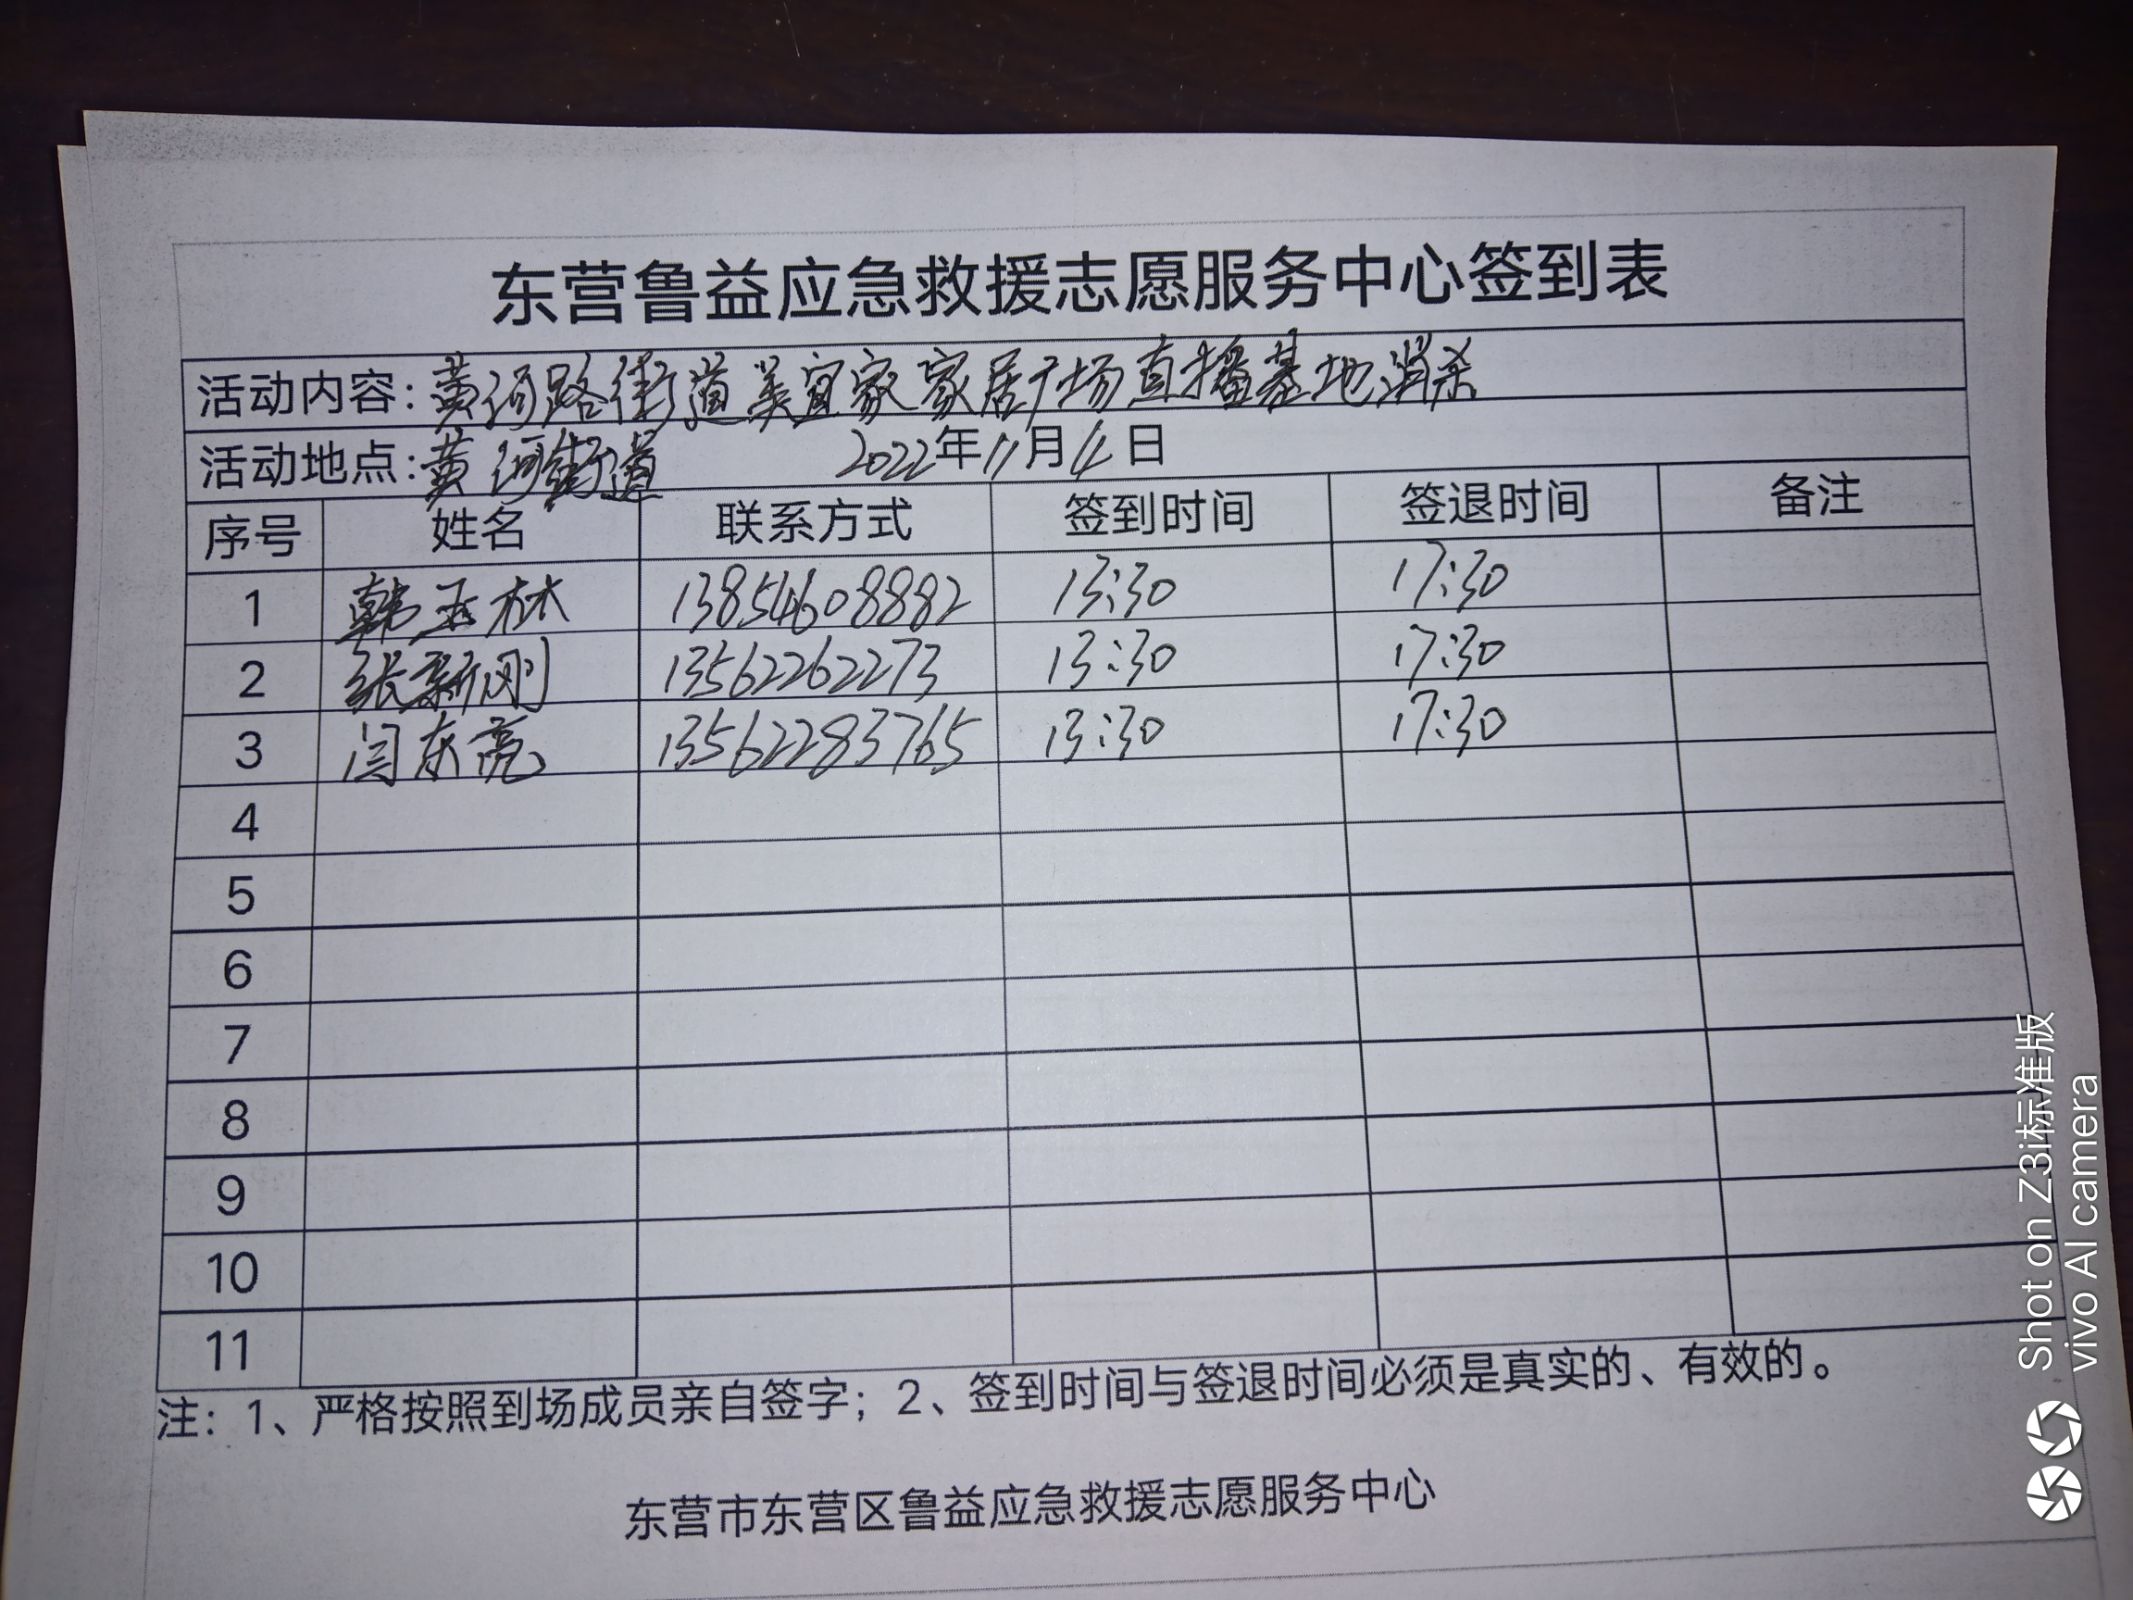 东营鲁益应急救援志愿服务中心签到表
活动内容：黄河路街道美宜家家居广场直播基地消杀
活动地点：黄河街道 2022年11月4日
序号 姓名 联系方式 签到时间 签退时间 备注
1 韩玉林 13854608882 13:30 17:30
2 张新刚 13562262273 13:30 17:30
3 闫东亮 13562283765 13:30 17:30
4
5
6
7
8
9
10
11
注：1、严格按照到场成员亲自签字；2、签到时间与签退时间必须是真实的、有效的。
东营市东营区鲁益应急救援志愿服务中心
Shot on Z3i标准版
vivo AI camera